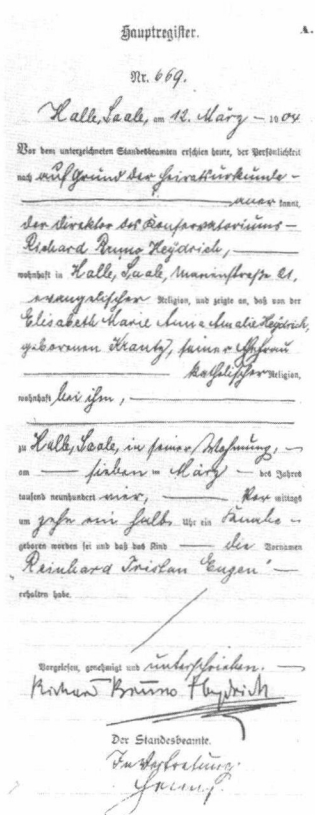 Hauptregister.
A.
Nr. 669.
Halle, Saale, am 12. März 1904
Vor dem unterzeichneten Standesbeamten erschien heute, der Persönlichkeit
nach auf Grund der Heiratsurkunde
anerkannt,
der Direktor des Konservatoriums
Richard Bruno Heydrich,
wohnhaft in Halle, Saale, 21,
evangelischer Religion, und zeigte an, daß von der
Elisabeth Marie Anna Amalie Heydrich,
geborenen Krantz, seiner Ehefrau
katholischer Religion,
wohnhaft bei ihm,
zu Halle, Saale, in seiner Wohnung,
am sieben ten März des Jahres
tausend neunhundert vier, Vor mittags
um zehn ein halb Uhr ein Knabe
geboren worden sei und daß das Kind die Vornamen
Reinhard Tristan Eugen
erhalten habe.
Vorgelesen, genehmigt und unterschrieben.
Richard Bruno Heydrich
Der Standesbeamte.
In Vertretung: